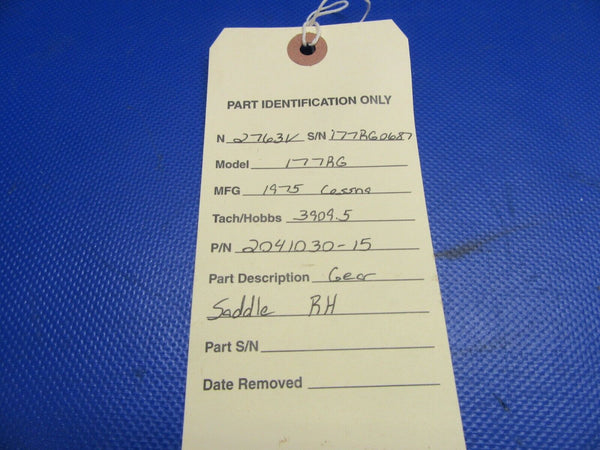 PART IDENTIFICATION ONLY
N 2763V S/N 177RG0687
Model 177RG
MFG 1975 Cessna
Tach/Hobbs 3909.5
P/N 2041030-15
Part Description Gear
Saddle RH
Part S/N
Date Removed